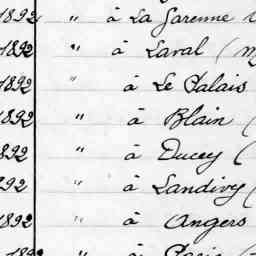 1892 " à La Garenne
1892 " à Laval (
1892 " à Le Palais
1892 " à Blain (
1892 " à Ducey (
1892 " à Landivy (
1892 " à Angers
1892 " à Paris (